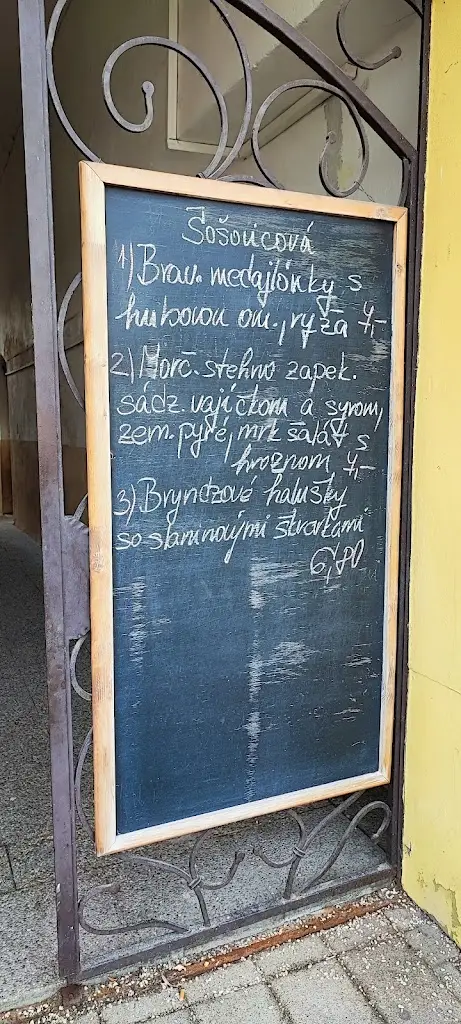 Šošovicová
1) Brav. medajlónky s
hubovou om., ryža 7,-
2) Morč. stehno zapek.
sádz. vajíčkom a syrom,
zem. pyré, mrk. šalát s
hroznom 7,-
3) Bryndzové halušky
so slaninovými škvarkami
6,80